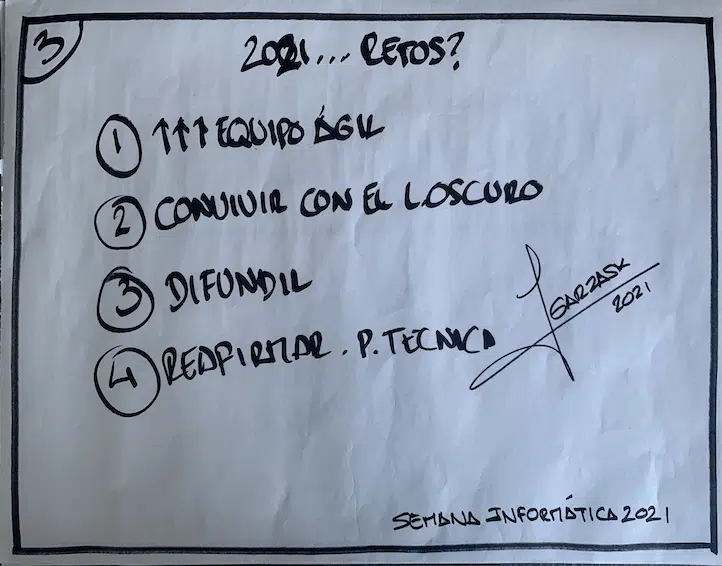 3
2021... RETOS?
1 ↑↑↑ EQUIPO ÁGIL
2 CONVIVIR CON EL L.OSCURO
3 DIFUNDIR
4 REAFIRMAR . P. TECNICA
GARZASK
2021
SEMANA INFORMÁTICA 2021